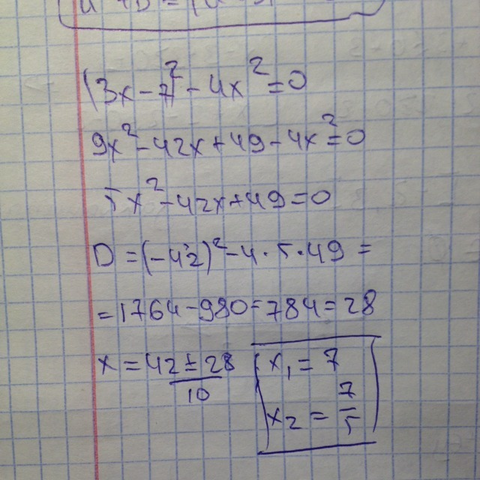 (3x-7)²-4x²=0
9x²-42x+49-4x²=0
5x²-42x+49=0
D=(-42)²-4·5·49=
=1764-980=784=28
x=42±28/10
x₁=7
x₂=7/5